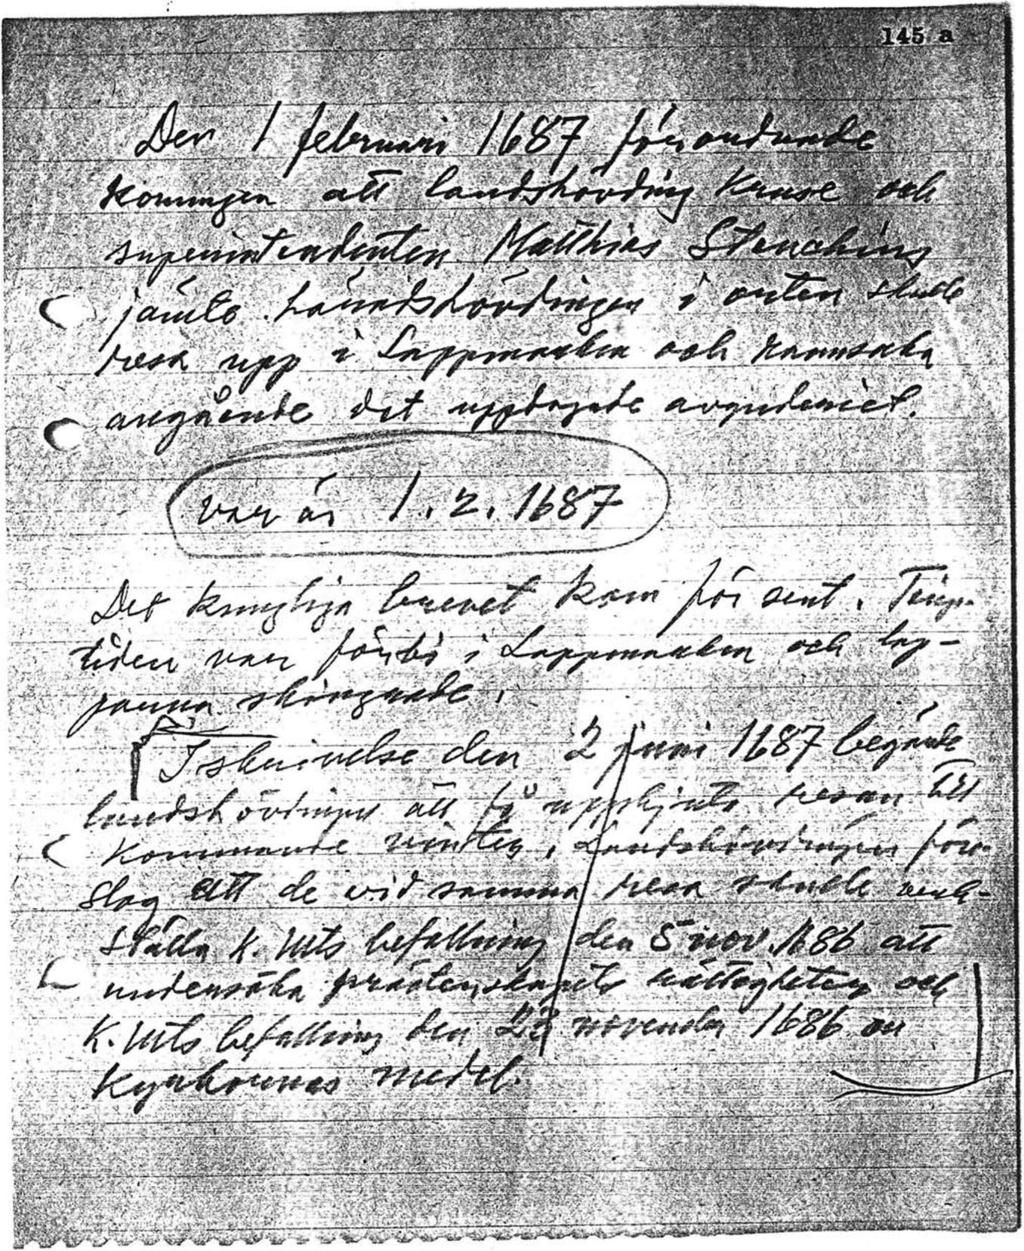 145 a
Den 1 februari 1687 förordnade
Konungen att landshövding Kruse och
superintendenten Matthias Steuchius
jämte häradshövdingen i orten skulle
resa upp i Lappmarken och rannsaka
angående det uppdagade avguderiet.
var är 1.2.1687
Det kungliga brevet kom för sent. Ting-
tiden var förbi i Lappmarken och lap-
parna skingrade.
I skrivelse den 2 juni 1687 begärde
landshövdingen att få uppskjuta resan till
kommande vinter. Landshövdingen före-
slog att de vid samma resa skulle verk-
ställa K. Mts befallning den 5 nov. 1686 att
undersöka prästerskapets rättigheter och
K. Mts befallning den 23 november 1686 om
Kyrkornas medel.